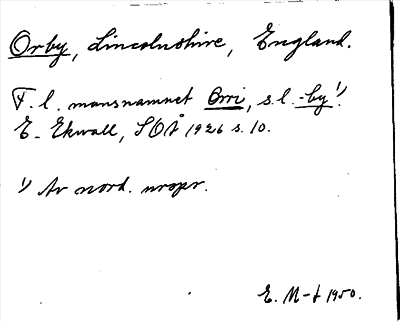 Orby, Lincolnshire, England.
F. l. mansnamnet Orri, s. l. -by ¹⁾.
E. Ekwall, SOÅ 1926 s. 10.
¹⁾ Av nord. urspr.
E. M-t 1950.